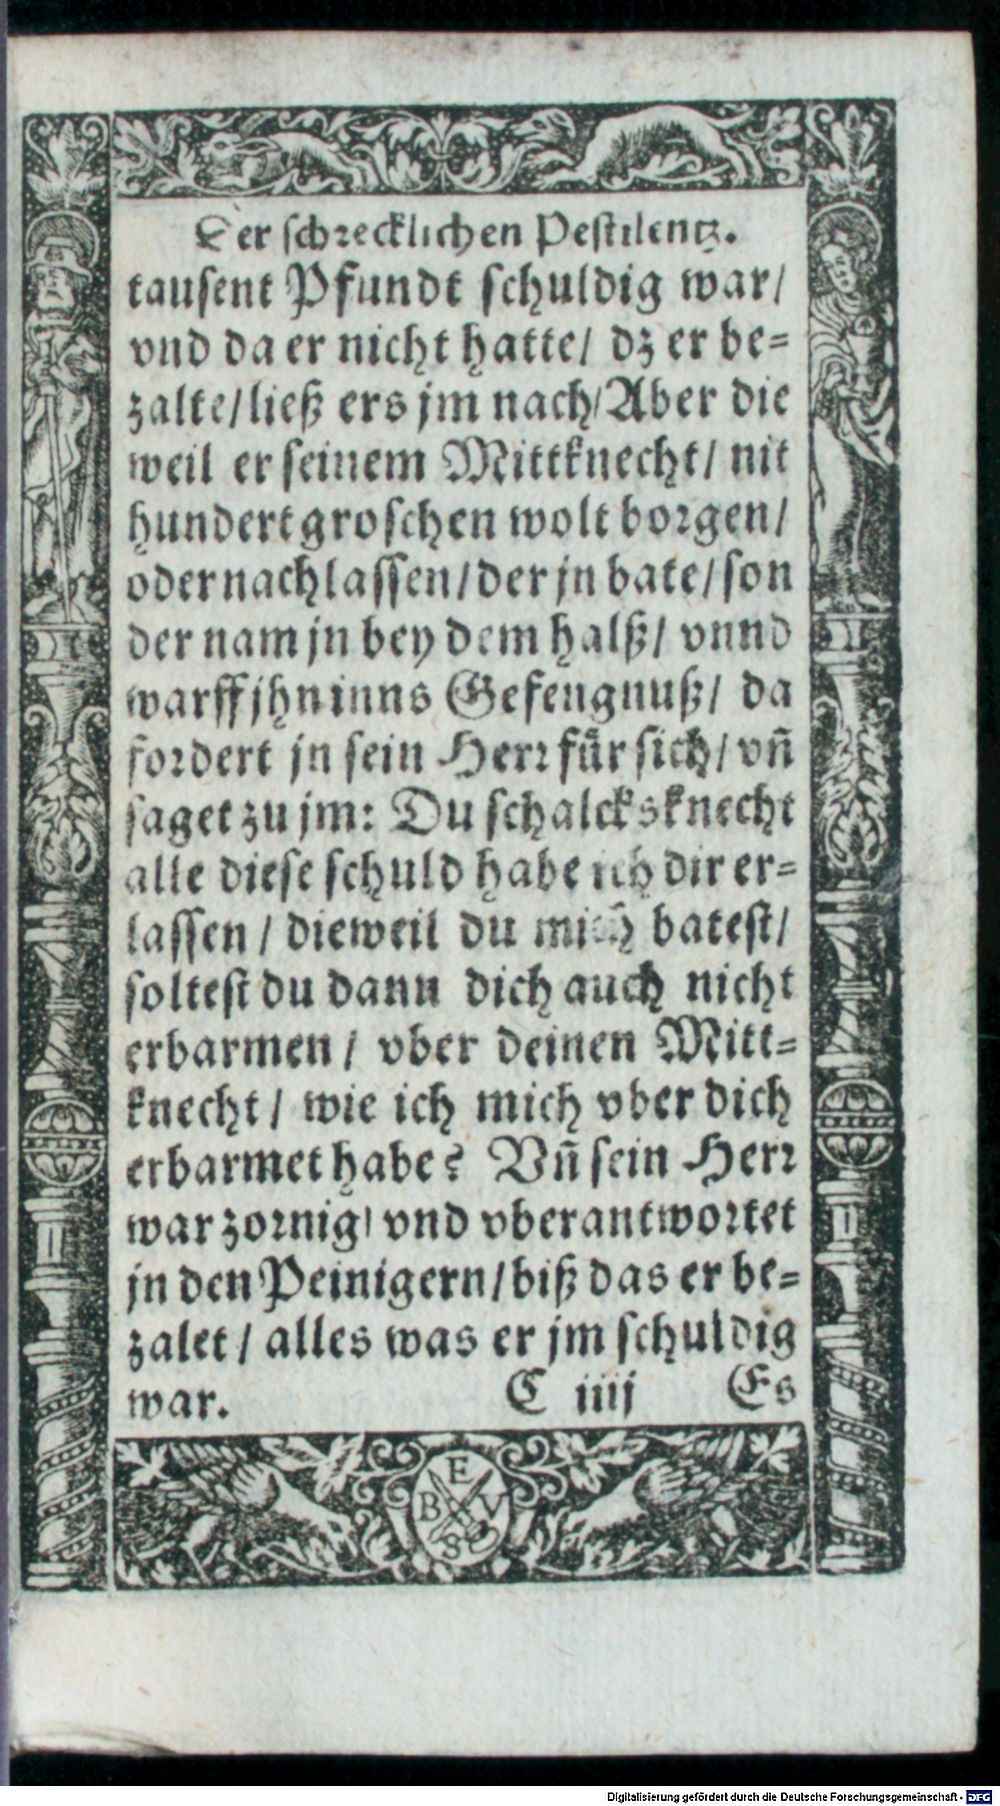 Der schrecklichen Pestilentz.
tausent Pfundt schuldig war/
vnd da er nicht hatte/ dz er be=
zalte/ließ ers jm nach/Aber die
weil er seinem Mittknecht/ nit
hundert groschen wolt borgen/
oder nachlassen/der jn bate/son
der nam jn bey dem halß/ vnnd
warff jhn inns Gefengnuß/ da
fordert jn sein Herr für sich/ vñ
saget zu jm: Du schalcksknecht
alle diese schuld habe ich dir er=
lassen / dieweil du mich batest/
soltest du dann dich auch nicht
erbarmen / vber deinen Mitt=
knecht/ wie ich mich vber dich
erbarmet habe? Vñ sein Herr
war zornig/ vnd vberantwortet
jn den Peinigern/biß das er be=
zalet/ alles was er jm schuldig
war. C iiij Es
E
B V
S
Digitalisierung gefördert durch die Deutsche Forschungsgemeinschaft - DFG